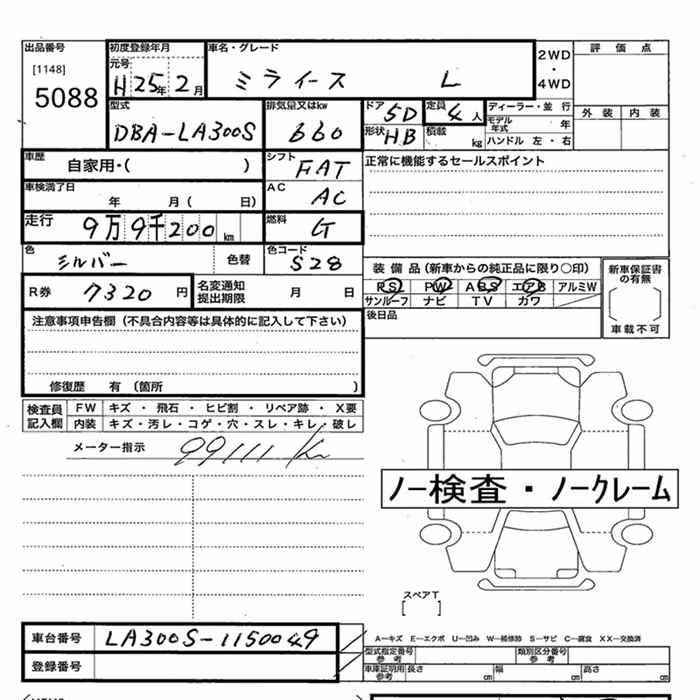 出品番号 初度登録年月 車名・グレード 評価点
[1148] 元号 2WD
5088 H 25年 2月 ミライース L ・
4WD
型式 排気量又はkw ドア 5D 定員 4人 ディーラー・並行 外装 内装
DBA-LA300S 660 形状 HB 積載 kg モデル年式 年
ハンドル 左・右
車歴 自家用・( ) シフト FAT 正常に機能するセールスポイント
車検満了日 年 月( 日) AC AC
走行 9万9千200km 燃料 G
色 シルバー 色替 色コード S28
装備品(新車からの純正品に限り○印) 新車保証書の有無
R券 7320円 名変通知提出期限 月 日 PS PW ABS エアB アルミW
サンルーフ ナビ TV カワ
注意事項申告欄(不具合内容等は具体的に記入して下さい) 後日品 車載不可
修復歴 有(箇所 )
検査員記入欄 FW キズ・飛石・ヒビ割・リペア跡・X要
内装 キズ・汚レ・コゲ・穴・スレ・キレ・破レ
メーター指示 99111 Km
ノー検査・ノークレーム
スペアT
[ ]
車台番号 LA300S-1150049 A−キズ E−エクボ U−凹み W−補修跡 S−サビ C−腐食 XX−交換済
型式指定番号 参考 類別区分番号 参考
登録番号 車庫証明用参考 長さ cm 幅 cm 高さ cm